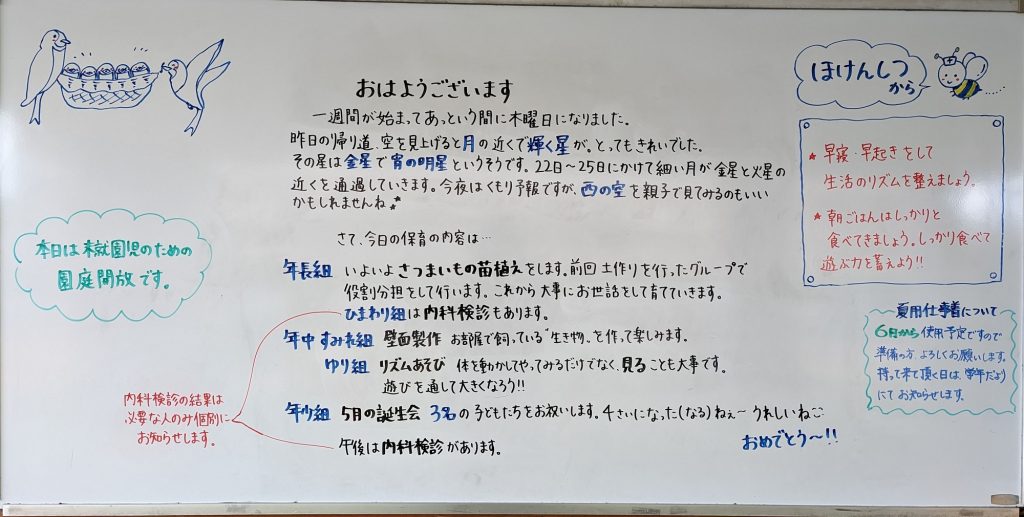 おはようございます
一週間が始まってあっという間に木曜日になりました。
昨日の帰り道、空を見上げると月の近くで輝く星が、とってもきれいでした。
その星は金星で宵の明星というそうです。22日～25日にかけて細い月が金星と火星の
近くを通過していきます。今夜はくもり予報ですが、西の空を親子で見てみるのもいい
かもしれませんね
さて、今日の保育の内容は…
年長組 いよいよさつまいもの苗植えをします。前回土作りを行ったグループで
役割分担をして行います。これから大事にお世話をして育てていきます。
ひまわり組は内科検診もあります。
年中 すみれ組 壁面製作 お部屋で飼っている"生き物"を作って楽しみます。
ゆり組 リズムあそび 体を動かしてやってみるだけでなく、見ることも大事です。
遊びを通して大きくなろう!!
年少組 5月の誕生会 3名の子どもたちをお祝いします。4さいになった(なる)ねぇー うれしいねこ
おめでとう〜!!
午後は内科検診があります。
本日は未就園児のための
園庭開放です。
内科検診の結果は
必要な人のみ個別に
お知らせします。
ほけんしつ
から
★ 早寝・早起きをして
生活のリズムを整えましょう。
★ 朝ごはんはしっかりと
食べてきましょう。しっかり食べて
遊ぶ力を蓄えよう!!
夏用仕事着について
6月から使用予定ですので
準備の方、よろしくお願いします。
持って来て頂く日は、学年だより
にてお知らせします。